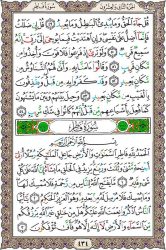 الجزء الثاني والعشرون سورة فاطر
قل جاء الحق وما يبدئ الباطل وما يعيد ٤٩ قل إن ضللت
فإنما أضل على نفسي وإن اهتديت فبما يوحي إلي ربي إنه
سميع قريب ٥٠ ولو ترى إذ فزعوا فلا فوت وأخذوا من
مكان قريب ٥١ وقالوا آمنا به وأنى لهم التناوش من
مكان بعيد ٥٢ وقد كفروا به من قبل ويقذفون
بالغيب من مكان بعيد ٥٣ وحيل بينهم وبين ما يشتهون
كما فعل بأشياعهم من قبل إنهم كانوا في شك مريب ٥٤
سورة فاطر
بسم الله الرحمن الرحيم
الحمد لله فاطر السماوات والأرض جاعل الملائكة رسلا
أولي أجنحة مثنى وثلاث ورباع يزيد في الخلق ما يشاء إن الله
على كل شيء قدير ١ ما يفتح الله للناس من رحمة فلا ممسك لها
وما يمسك فلا مرسل له من بعده وهو العزيز الحكيم ٢ يا أيها
الناس اذكروا نعمت الله عليكم هل من خالق غير الله يرزقكم
من السماء والأرض لا إله إلا هو فأنى تؤفكون ٣
٤٣٤